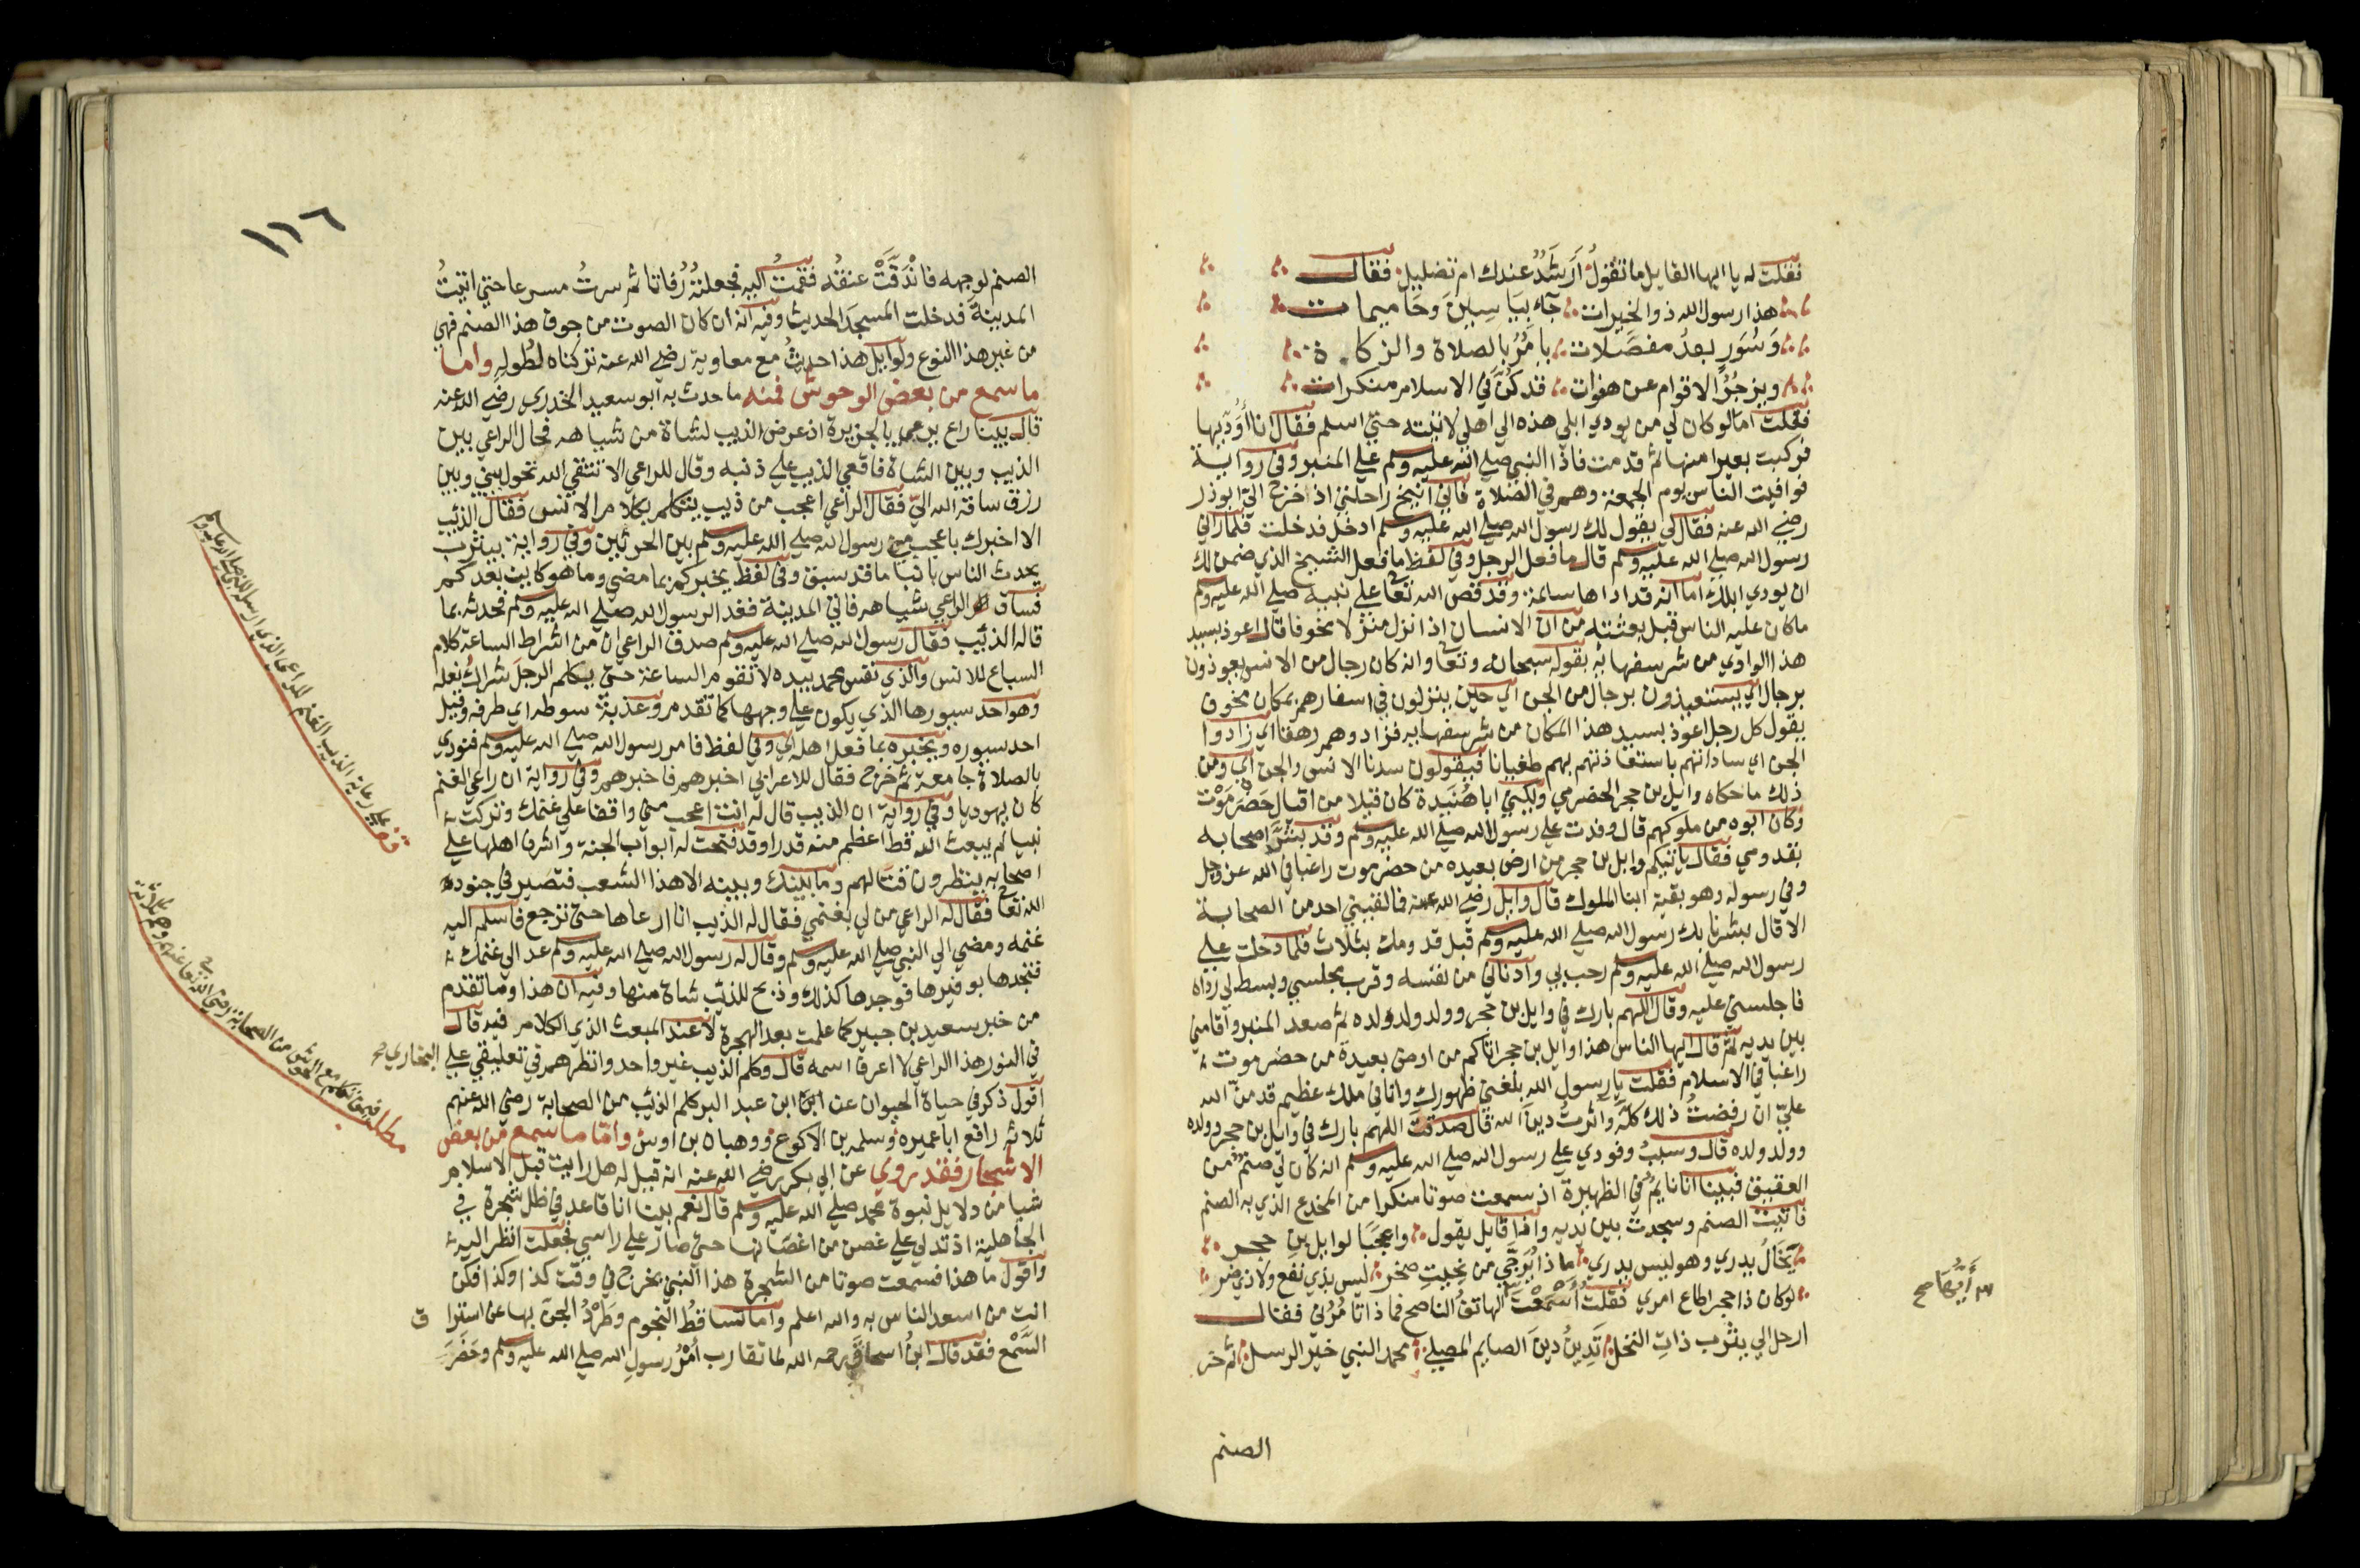 فقلت له يا ايها القايل ما تقول أرشد عندك ام تضليل فقال
هذا رسول الله ذو الخيرات جاء بياسين وحاميمات
وسور بعد مفصلات يامر بالصلاة والزكاة
ويزجر الاقوام عن هنوات قد كن في الاسلام منكرات
فقلت اما لو كان لي من يودي ابلي هذه الي اهلي لاتيته حتي اسلم فقال انا أؤديها
فركبت بعيرا منها ثم قدمت فاذا النبي صلي الله عليه وسلم علي المنبر وفي رواية
فوافيت الناس يوم الجمعة وهم في الصلاة فاني انيخ راحلتي اذ خرج الي ابو ذر
رضي الله عنه فقال لي يقول لك رسول الله صلي الله عليه وسلم ادخل فدخلت فلما راني
رسول الله صلي الله عليه وسلم قال ما فعل الرجل وفي لفظ ما فعل الشيخ الذي ضمن لك
ان يودي ابلك اما انه قد اداها سالمة وقد قص الله تعالى علي نبيه صلي الله عليه وسلم
ما كان عليه الناس قبل بعثته من ان الانسان اذا نزل منزلا مخوفا قال اعوذ بسيد
هذا الوادي من شر سفهائه بقوله سبحانه وتعالى وانه كان رجال من الانس يعوذون
برجال اي يستعيذون برجال من الجن اي حين ينزلون في اسفارهم بمكان مخوف
يقول كل رجل اعوذ بسيد هذا المكان من شر سفهايه فزادوهم رهقا اي زادوا
الجن اي ساداتهم باستعاذتهم بهم طغيانا فيقولون سدنا الانس والجن اي ومن
ذلك ما حكاه وايل بن حجر الحضرمي ويكني ابا هنيدة كان قيلا من اقيال حضرموت
وكان ابوه من ملوكهم قال وفدت علي رسول الله صلي الله عليه وسلم وقد بشر اصحابه
بقدومي فقال ياتيكم وايل بن حجر من ارض بعيده من حضرموت راغبا في الله عز وجل
وفي رسوله وهو بقية ابنا الملوك قال وايل رضي الله عنه فما لقيني احد من الصحابة
الا قال بشرنا بك رسول الله صلي الله عليه وسلم قبل قدومك بثلاث فلما دخلت علي
رسول الله صلي الله عليه وسلم رحب بي وادناني من نفسه وقرب مجلسي وبسط لي رداه
فاجلسني عليه وقال اللهم بارك في وايل بن حجر وولده وولد ولده ثم صعد المنبر واقامني
بين يديه ثم قال ايها الناس هذا وايل بن حجر اتاكم من ارض بعيدة من حضرموت
راغبا في الاسلام فقلت يا رسول الله بلغني ظهورك وانا في ملك عظيم فمن الله
علي ان رفضت ذلك كله واثرت دين الله قال صدقت اللهم بارك في وايل بن حجر وولده
وولد ولده قال وسبب وفودي علي رسول الله صلي الله عليه وسلم انه كان لي صنم من
العقيق فبينا انا نايم في الظهيرة اذ سمعت صوتا منكرا من المخدع الذي به الصنم
فاتيت الصنم وسجدت بين يديه واذا قايل يقول واعجبا لوايل بن حجر
يخال يدري وهو ليس يدري ماذا يرجي من نحيت صخر ليس بذي نفع ولا ذي ضر
لو كان ذا حجر اطاع امري فقلت أسمعت الهاتف الناصح فماذا تامرني فقال
ارحل الي يثرب ذات النخل تدين دين الصايم المصلي محمد النبي خير الرسل ثم خر
أيها صح
الصنم
١١٦
الصنم لوجهه فاندقت عنقه فقمت اليه فجعلته رفاتا ثم سرت مسرعا حتي اتيت
المدينة فدخلت المسجد الحديث وفيه انه ان كان الصوت من جوف هذا الصنم فهي
من غير هذا النوع ولوايل هذا حديث مع معاوية رضي الله عنه تركناه لطوله واما
ما سمع من بعض الوحوش فمنه ما حدث به ابو سعيد الخدري رضي الله عنه
قال بينا راع يرعي بالجزيرة اذ عرض الذيب لشاة من شياهه فحال الراعي بين
الذيب وبين الشاة فاقعي الذيب علي ذنبه وقال للراعي الا تتقي الله تحول بيني وبين
رزق ساقه الله الي فقال الراعي اعجب من ذيب يتكلم بكلام الانس فقال الذئب
الا اخبرك باعجب من رسول الله صلي الله عليه وسلم بين الحرتين وفي رواية بيثرب
يحدث الناس بانبا ما قد سبق وفي لفظ يخبركم بما مضي وما هو كاين بعدكم
فساق الراعي شياهه فاتي المدينة فغدا لرسول الله صلي الله عليه وسلم فحدثه بما
قاله الذئب فقال رسول الله صلي الله عليه وسلم صدق الراعي ان من اشراط الساعة كلام
السباع للانس والذي نفس محمد بيده لا تقوم الساعة حتي يكلم الرجل شراك نعله
وهو احد سيورها الذي يكون علي وجهها كما تقدم وعذبة سوطه اي طرفه وقيل
احد سيوره ويخبره بما فعل اهله اي وفي لفظ فامر رسول الله صلي الله عليه وسلم فنودي
بالصلاة جامعة ثم خرج فقال للاعرابي اخبرهم فاخبرهم وفي رواية ان راعي الغنم
كان يهوديا وفي رواية ان الذيب قال له انت اعجب مني واقفا علي غنمك وتركت
نبيا لم يبعث الله قط اعظم منه قدرا وقد فتحت له ابواب الجنة واشرف اهلها علي
اصحابه ينظرون قتالهم وما بينك وبينه الا هذا الشعب فتصير في جنود
الله تعالى فقال له الراعي من لي بغنمي فقال له الذيب انا ارعاها حتي ترجع فاسلم اليه
غنمه ومضي الي النبي صلي الله عليه وسلم وقال له رسول الله صلي الله عليه وسلم عد الي غنمك
فتجدها بوفرها فوجدها كذلك وذبح للذئب شاة منها وفيه ان هذا وما تقدم
من خبر سعيد بن جبير كما علمت بعد الهجرة لا عند المبعث الذي الكلام فيه قال
في النور هذا الراعي لا اعرف اسمه قال وكلم الذيب غير واحد وانظرهم في تعليقي علي البخاري
اقول ذكر في حياة الحيوان عن ابن عبد البر كلم الذئب من الصحابة رضي الله عنهم
ثلاثه رافع ابا عميره وسلمه بن الاكوع ووهبان بن اوس واما ما سمع من بعض
الاشجار فقد روي عن ابي بكر رضي الله عنه انه قيل له هل رايت قبل الاسلام
شيا من دلايل نبوة محمد صلي الله عليه وسلم قال نعم بينا انا قاعد في ظل شجرة في
الجاهلية اذ تدلي علي غصن من اغصانها حتي صار علي راسي فجعلت انظر اليه
واقول ما هذا فسمعت صوتا من الشجرة هذا النبي يخرج في وقت كذا وكذا فكن
انت من اسعد الناس به والله اعلم واما تساقط النجوم وطرد الجن بها عن استراق
السمع فقد قال ابن اسحاق رحمه الله لما تقارب امر رسول الله صلي الله عليه وسلم وحضر
قف علي رعاية الذيب الغنم للراعي الذي